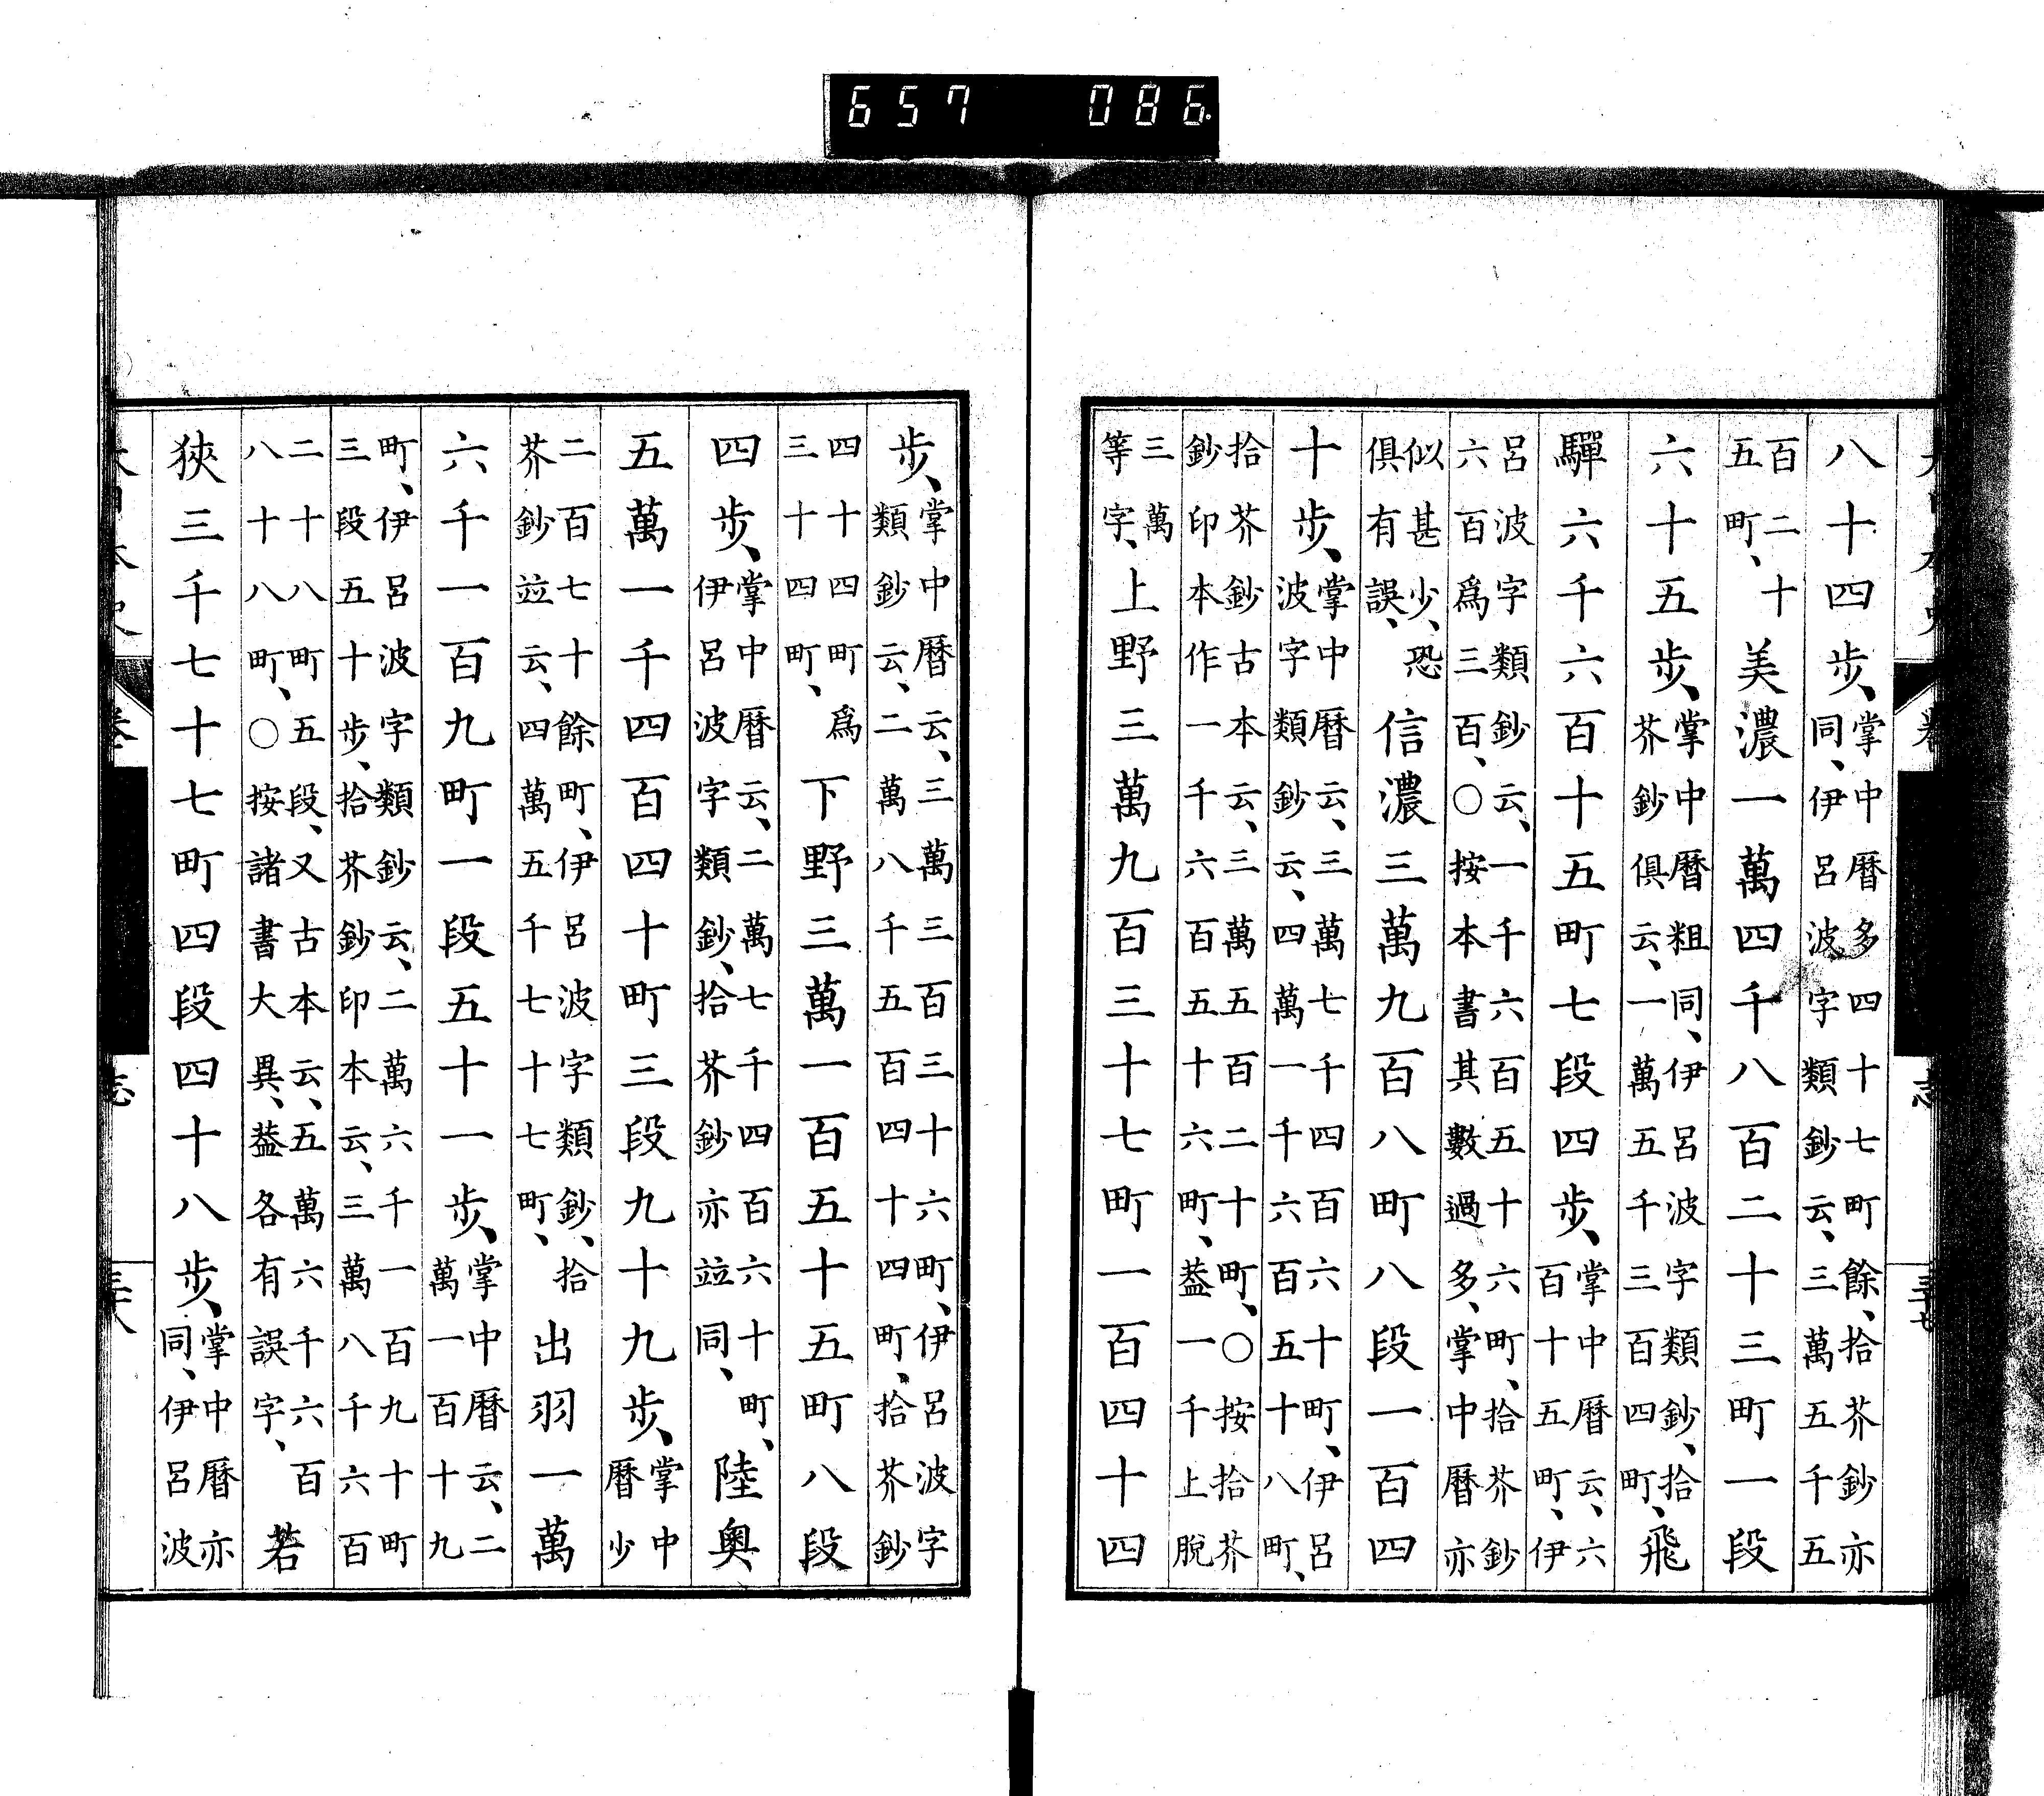 657 086
八十四步、掌中曆多四十七町餘、拾芥鈔亦
同、伊呂波字類鈔云、三萬五千五
百二十
五町、美濃一萬四千八百二十三町一段
六十五步、掌中曆粗同、伊呂波字類鈔、拾
芥鈔俱云、一萬五千三百四町、飛
驒六千六百十五町七段四步、掌中曆云、六
百十五町、伊
呂波字類鈔云、一千六百五十六町、拾芥鈔
六百爲三百、○按本書其數過多、掌中曆亦
似甚少、恐
俱有誤、信濃三萬九百八町八段一百四
十步、掌中曆云、三萬七千四百六十町、伊呂
波字類鈔云、四萬一千六百五十八町、
拾芥鈔古本云、三萬五百二十町、○按拾芥
鈔印本作一千六百五十六町、蓋一千上脫
三萬
等字、上野三萬九百三十七町一百四十四
步、掌中曆云、三萬三百三十六町、伊呂波字
類鈔云、二萬八千五百四十四町、拾芥鈔
四十四町爲
三十四町、下野三萬一百五十五町八段
四步、掌中曆云、二萬七千四百六十町、
伊呂波字類鈔、拾芥鈔亦竝同、陸奧
五萬一千四百四十町三段九十九步、掌中
曆少
二百七十餘町、伊呂波字類鈔、拾
芥鈔竝云、四萬五千七十七町、出羽一萬
六千一百九町一段五十一步、掌中曆云、二
萬一百十九
町、伊呂波字類鈔云、二萬六千一百九十町
三段五十步、拾芥鈔印本云、三萬八千六百
二十八町五段、又古本云、五萬六千六百
八十八町、○按諸書大異、蓋各有誤字、若
狹三千七十七町四段四十八步、掌中曆亦
同、伊呂波